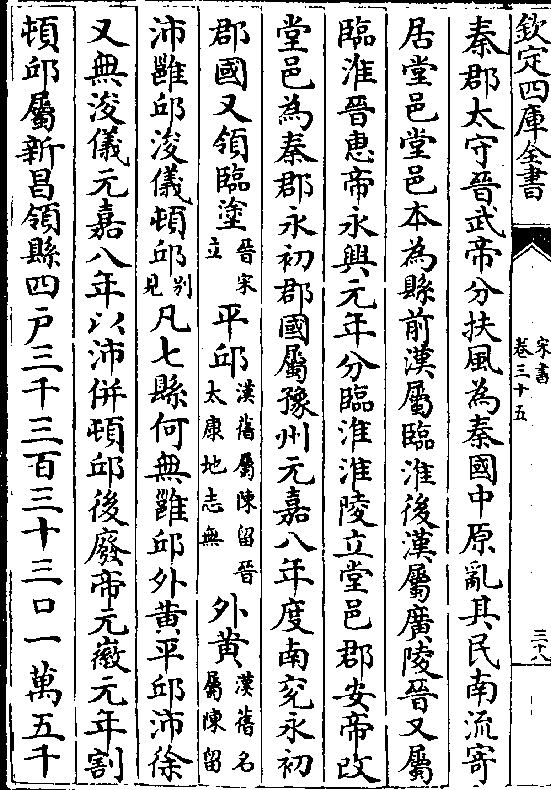 欽定四庫全書
宋書
卷三十五
三十八
秦郡太守晉武帝分扶風為秦國中原亂其民南流寄
居堂邑堂邑本為縣前漢屬臨淮後漢屬廣陵晉又屬
臨淮晉惠帝永興元年分臨淮淮陵立堂邑郡安帝改
堂邑為秦郡永初郡國屬豫州元嘉八年度南兖永初
郡國又領臨塗晉宋立平邱漢舊屬陳留晉太康地志無外黄漢舊名屬陳留
沛雝邱浚儀頓邱别見凡七縣何無雝邱外黄平邱沛徐
又無浚儀元嘉八年以沛併頓邱後廢帝元徽元年割
頓邱屬新昌領縣四户三千三百三十三口一萬五千